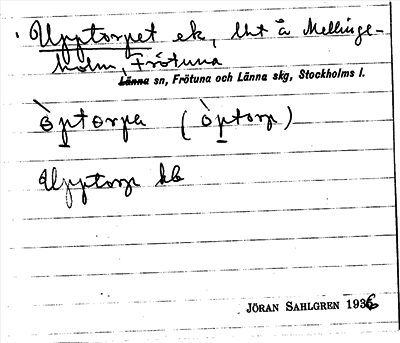 Upptorpet ek, lht å Mellinge-
holm, Frötuna
Länna sn, Frötuna och Länna skg, Stockholms l.
òptorpa (òptorp)
Upptorp kb
JÖRAN SAHLGREN 1936